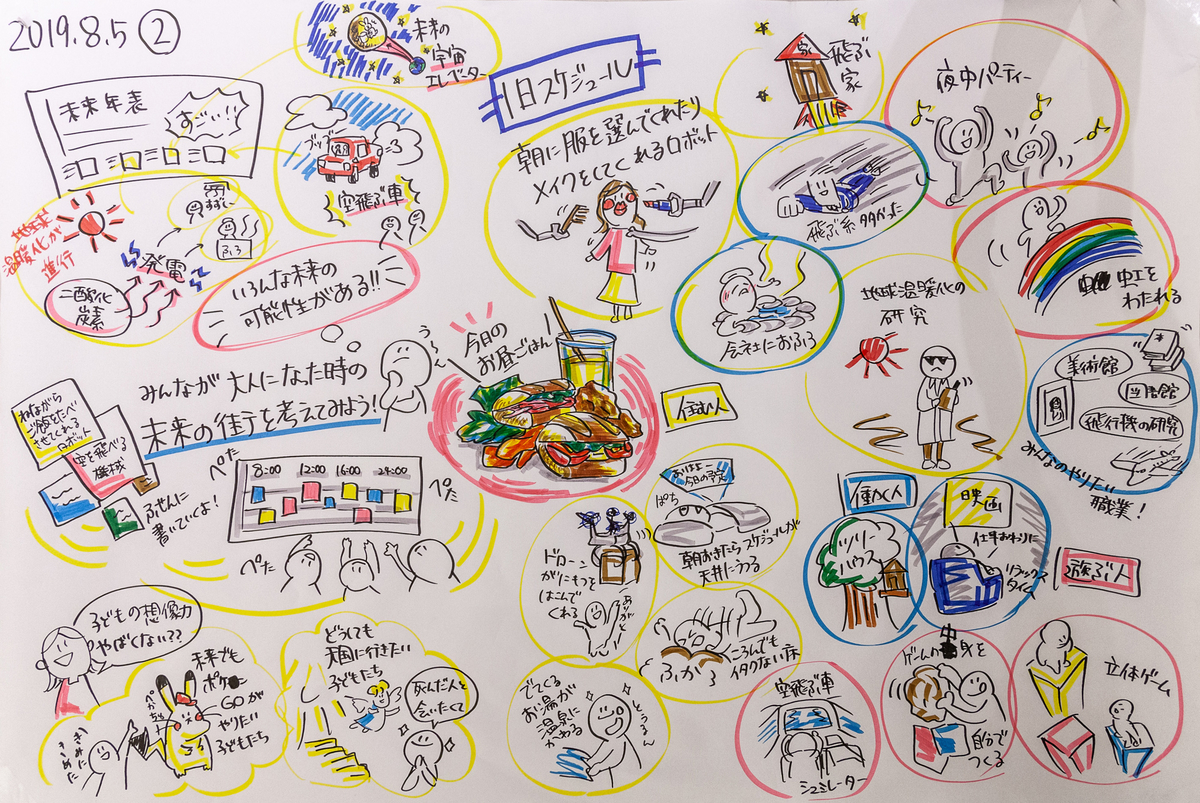 2019.8.5 ②
未来の
宇宙
エレベーター
未来年表
すごーい!!
ブッブ
空飛ぶ車
地球
温暖化が
進行
発電
二酸化
炭素
いろんな未来の
可能性がある!!
1日スケジュール
朝に服を選んでくれたり
メイクをしてくれるロボット
飛ぶ
家
夜中パーティー
飛ぶ系多かった
虹を
わたれる
会社におふろ
地球温暖化の
研究
美術館
図書館
飛行機の研究
みんなのやりたい
職業!
みんなが大人になった時の
未来の街を考えてみよう!
うーん
今日の
お昼ごはん
ねながら
ご飯をたべ
させてくれる
ロボット
空を飛べる
機械
ふせんに
書いていくよ!
8:00 12:00 16:00 24:00
ぺた
ぺた
ぺた
住む人
おはよー
今日の予定
ぱち
朝おきたらスケジュールが
天井にうつる
ドローン
がにもつを
はこんで
くれる
ありがと
働く人
ツリー
ハウス
映画
仕事おわりに
リラックス
タイム
遊ぶ人
子どもの想像力
やばくない??
未来でも
ポケモン
GOが
やりたい
子どもたち
ぴかちゅう
きみに
きめた
どうしても
天国に行きたい
子どもたち
死んだ人と
会いたくて
でてくる
お湯が
温泉に
かわる
ころんでも
イタクない床
ふかふか
空飛ぶ車
シュミレーター
ゲームの中身を
自分で
つくる
立体ゲーム